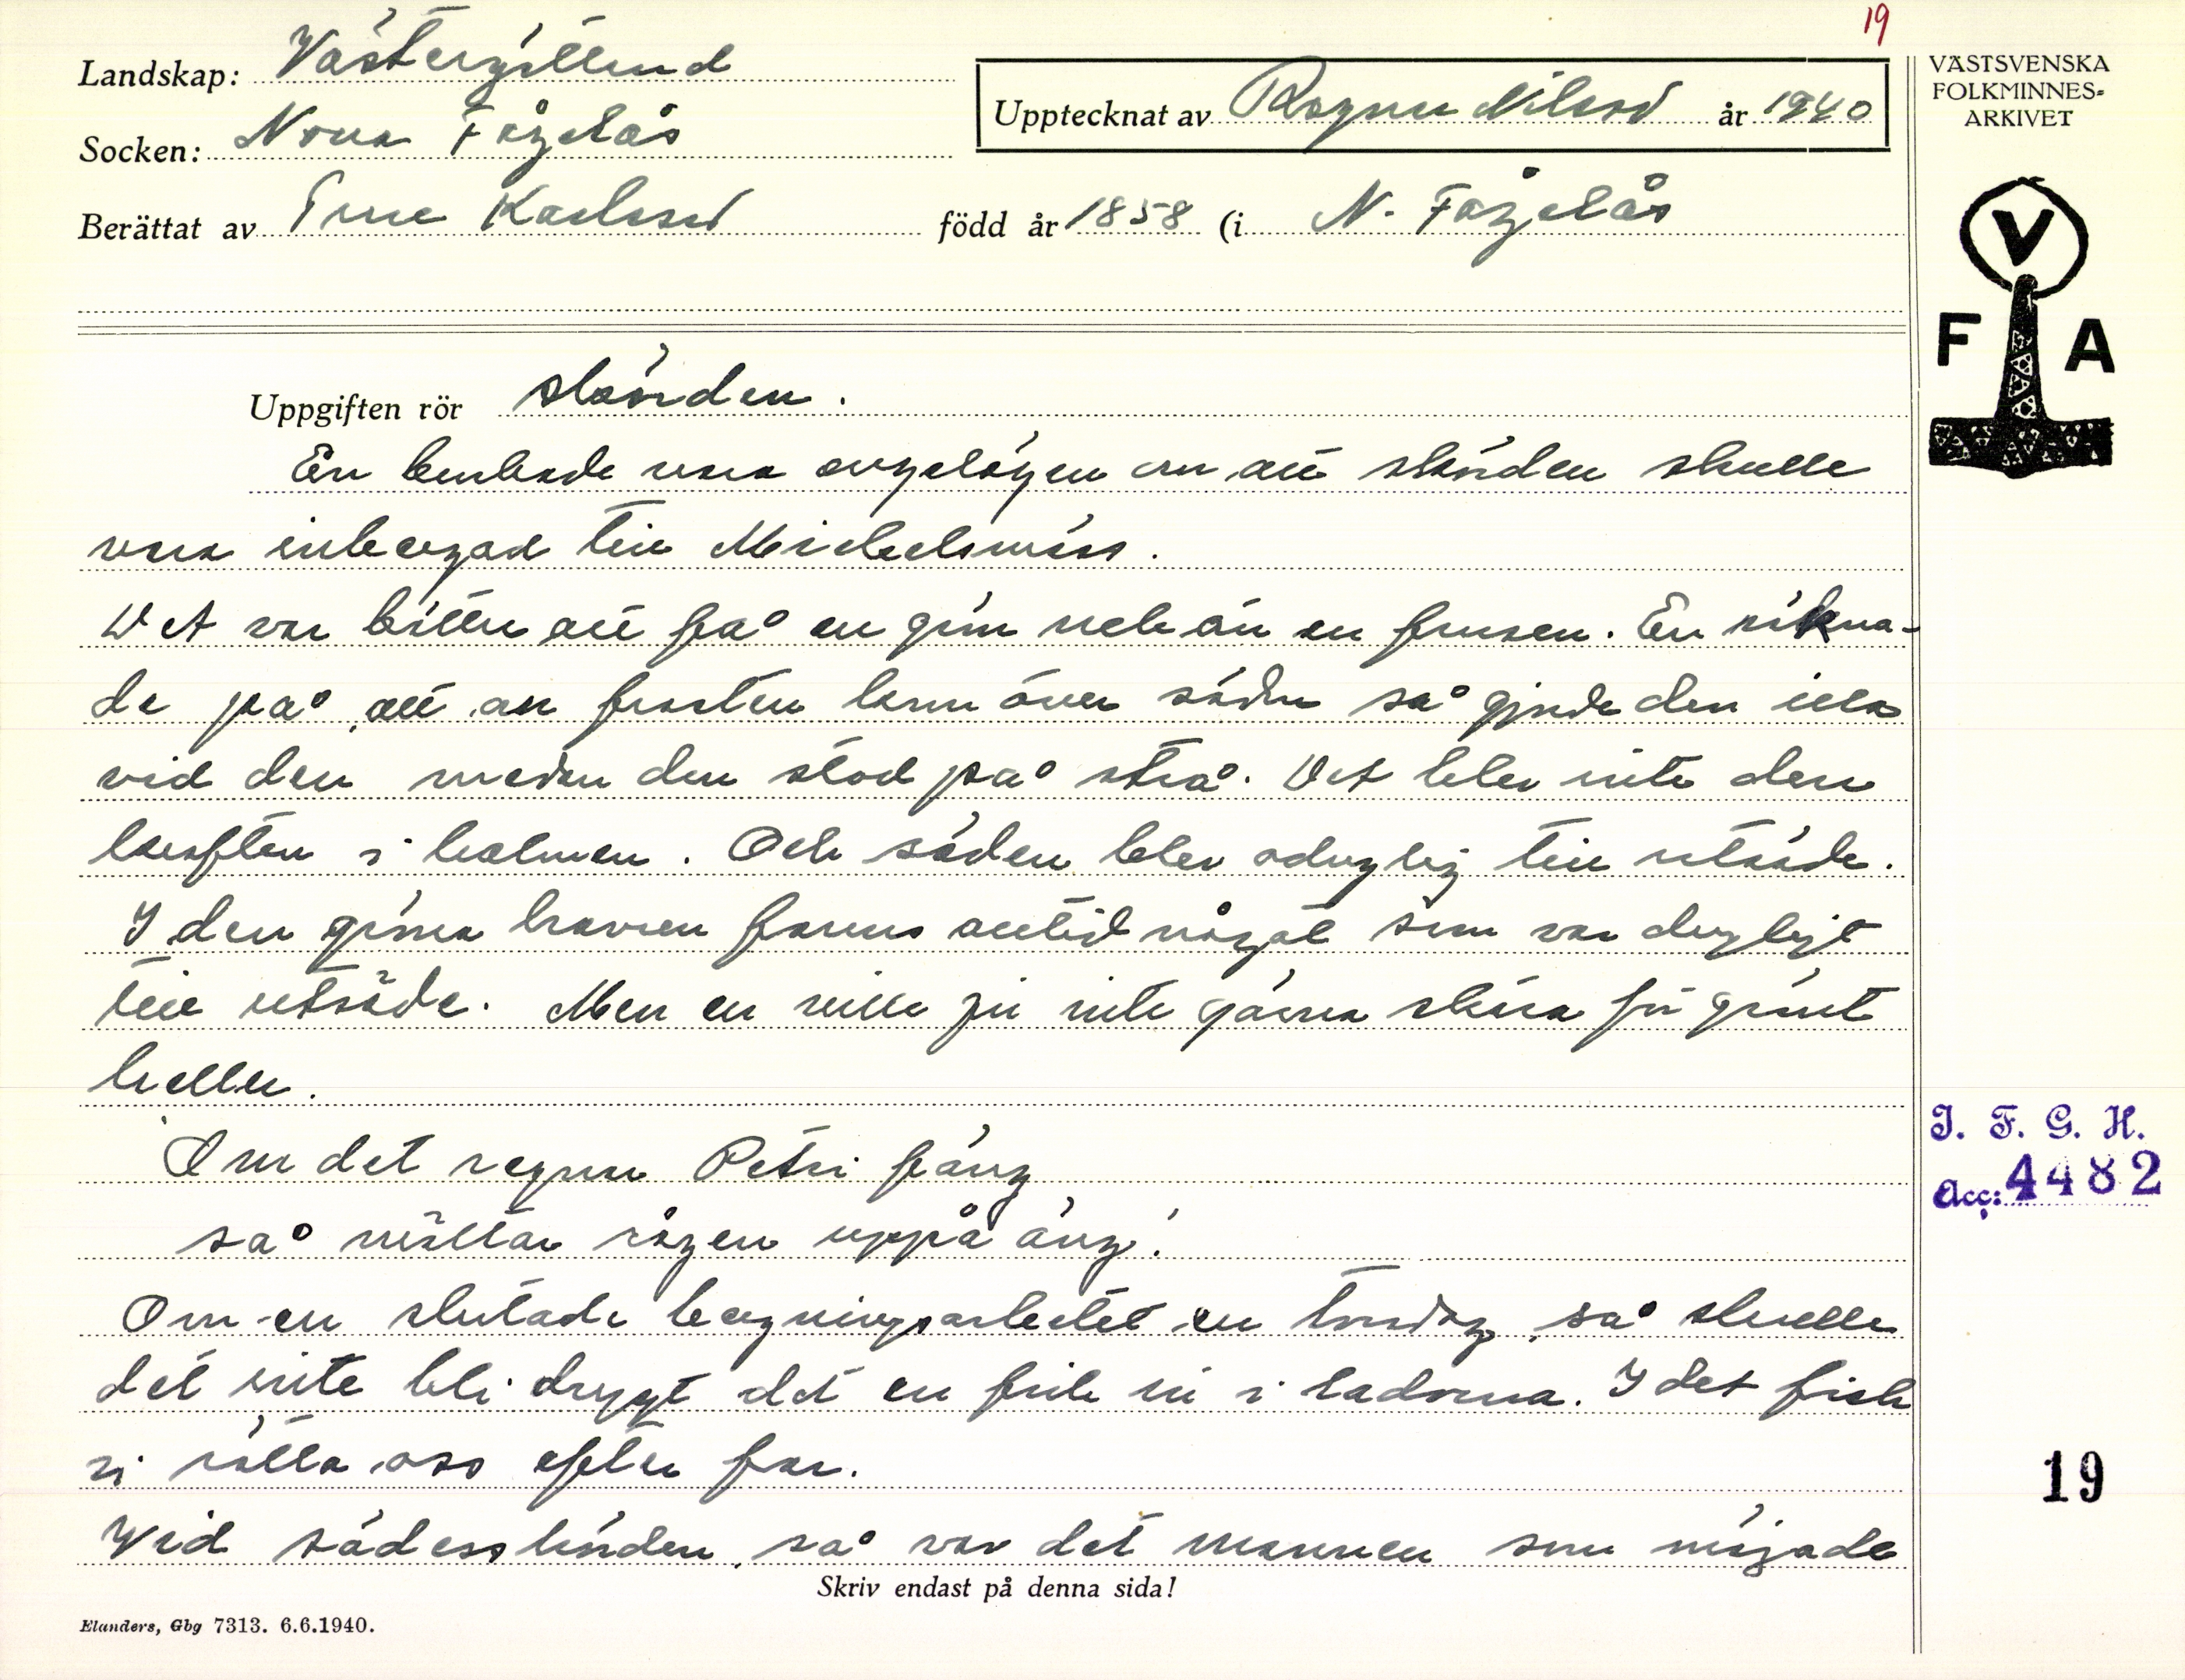 19
Landskap: Västergötland
Socken: Norra Fågelås
Upptecknat av Ragnar Nilsson år 1940
VÄSTSVENSKA
FOLKMINNES-
ARKIVET
Berättat av Karlsson född år 1858 (i N. Fågelås
V
F A
Uppgiften rör skörden.
En brukade vara angelägen om att skörden skulle
vara inbergad till Michelsmäss.
Det var bättre att få en grön och än en frusen. En räkna-
de på att om frosten kom över säden så gjorde den illa
vid den medan den stod på strå. Det blev inte den
kraften i halmen. Och säden blev oduglig till utsäde.
I den gröna havren fanns alltid något som var dugligt
till utsäde. Men en ville ju inte gärna skära för grönt
heller.
Om det regnar Petri fäng
så möltar rågen uppå äng!
I. F. G. H.
Acc: 4482
Om en slutade bergningsarbetet en torsdag, så skulle
det inte bli drygt det en fick in i ladorna. I det fick
vi rätta oss efter far.
Vid sädesskörden, så var det mannen som mejade
19
Skriv endast på denna sida!
Elanders, Gbg 7313. 6.6.1940.